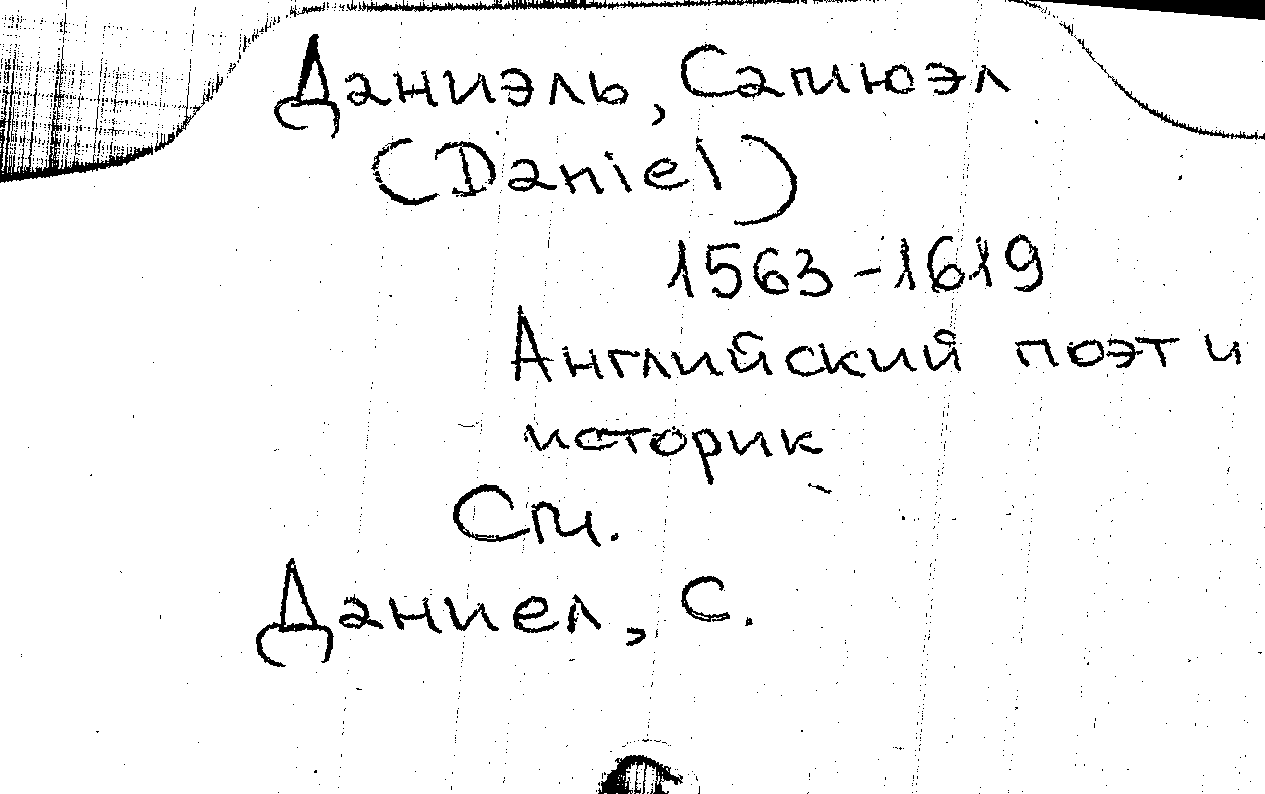 Даниэль, Самюэл
(Daniel)
1563-1619
Английский поэт и
историк
См.
Даниел, С.